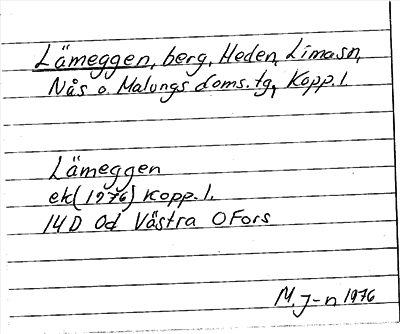 Lämeggen, berg, Heden, Limasn,
Nås o Malungs doms.tg, Kopp.l.
Lämeggen
ek(1976) Kopp.l.
14D 0d Västra OFors
M.J-n 1976